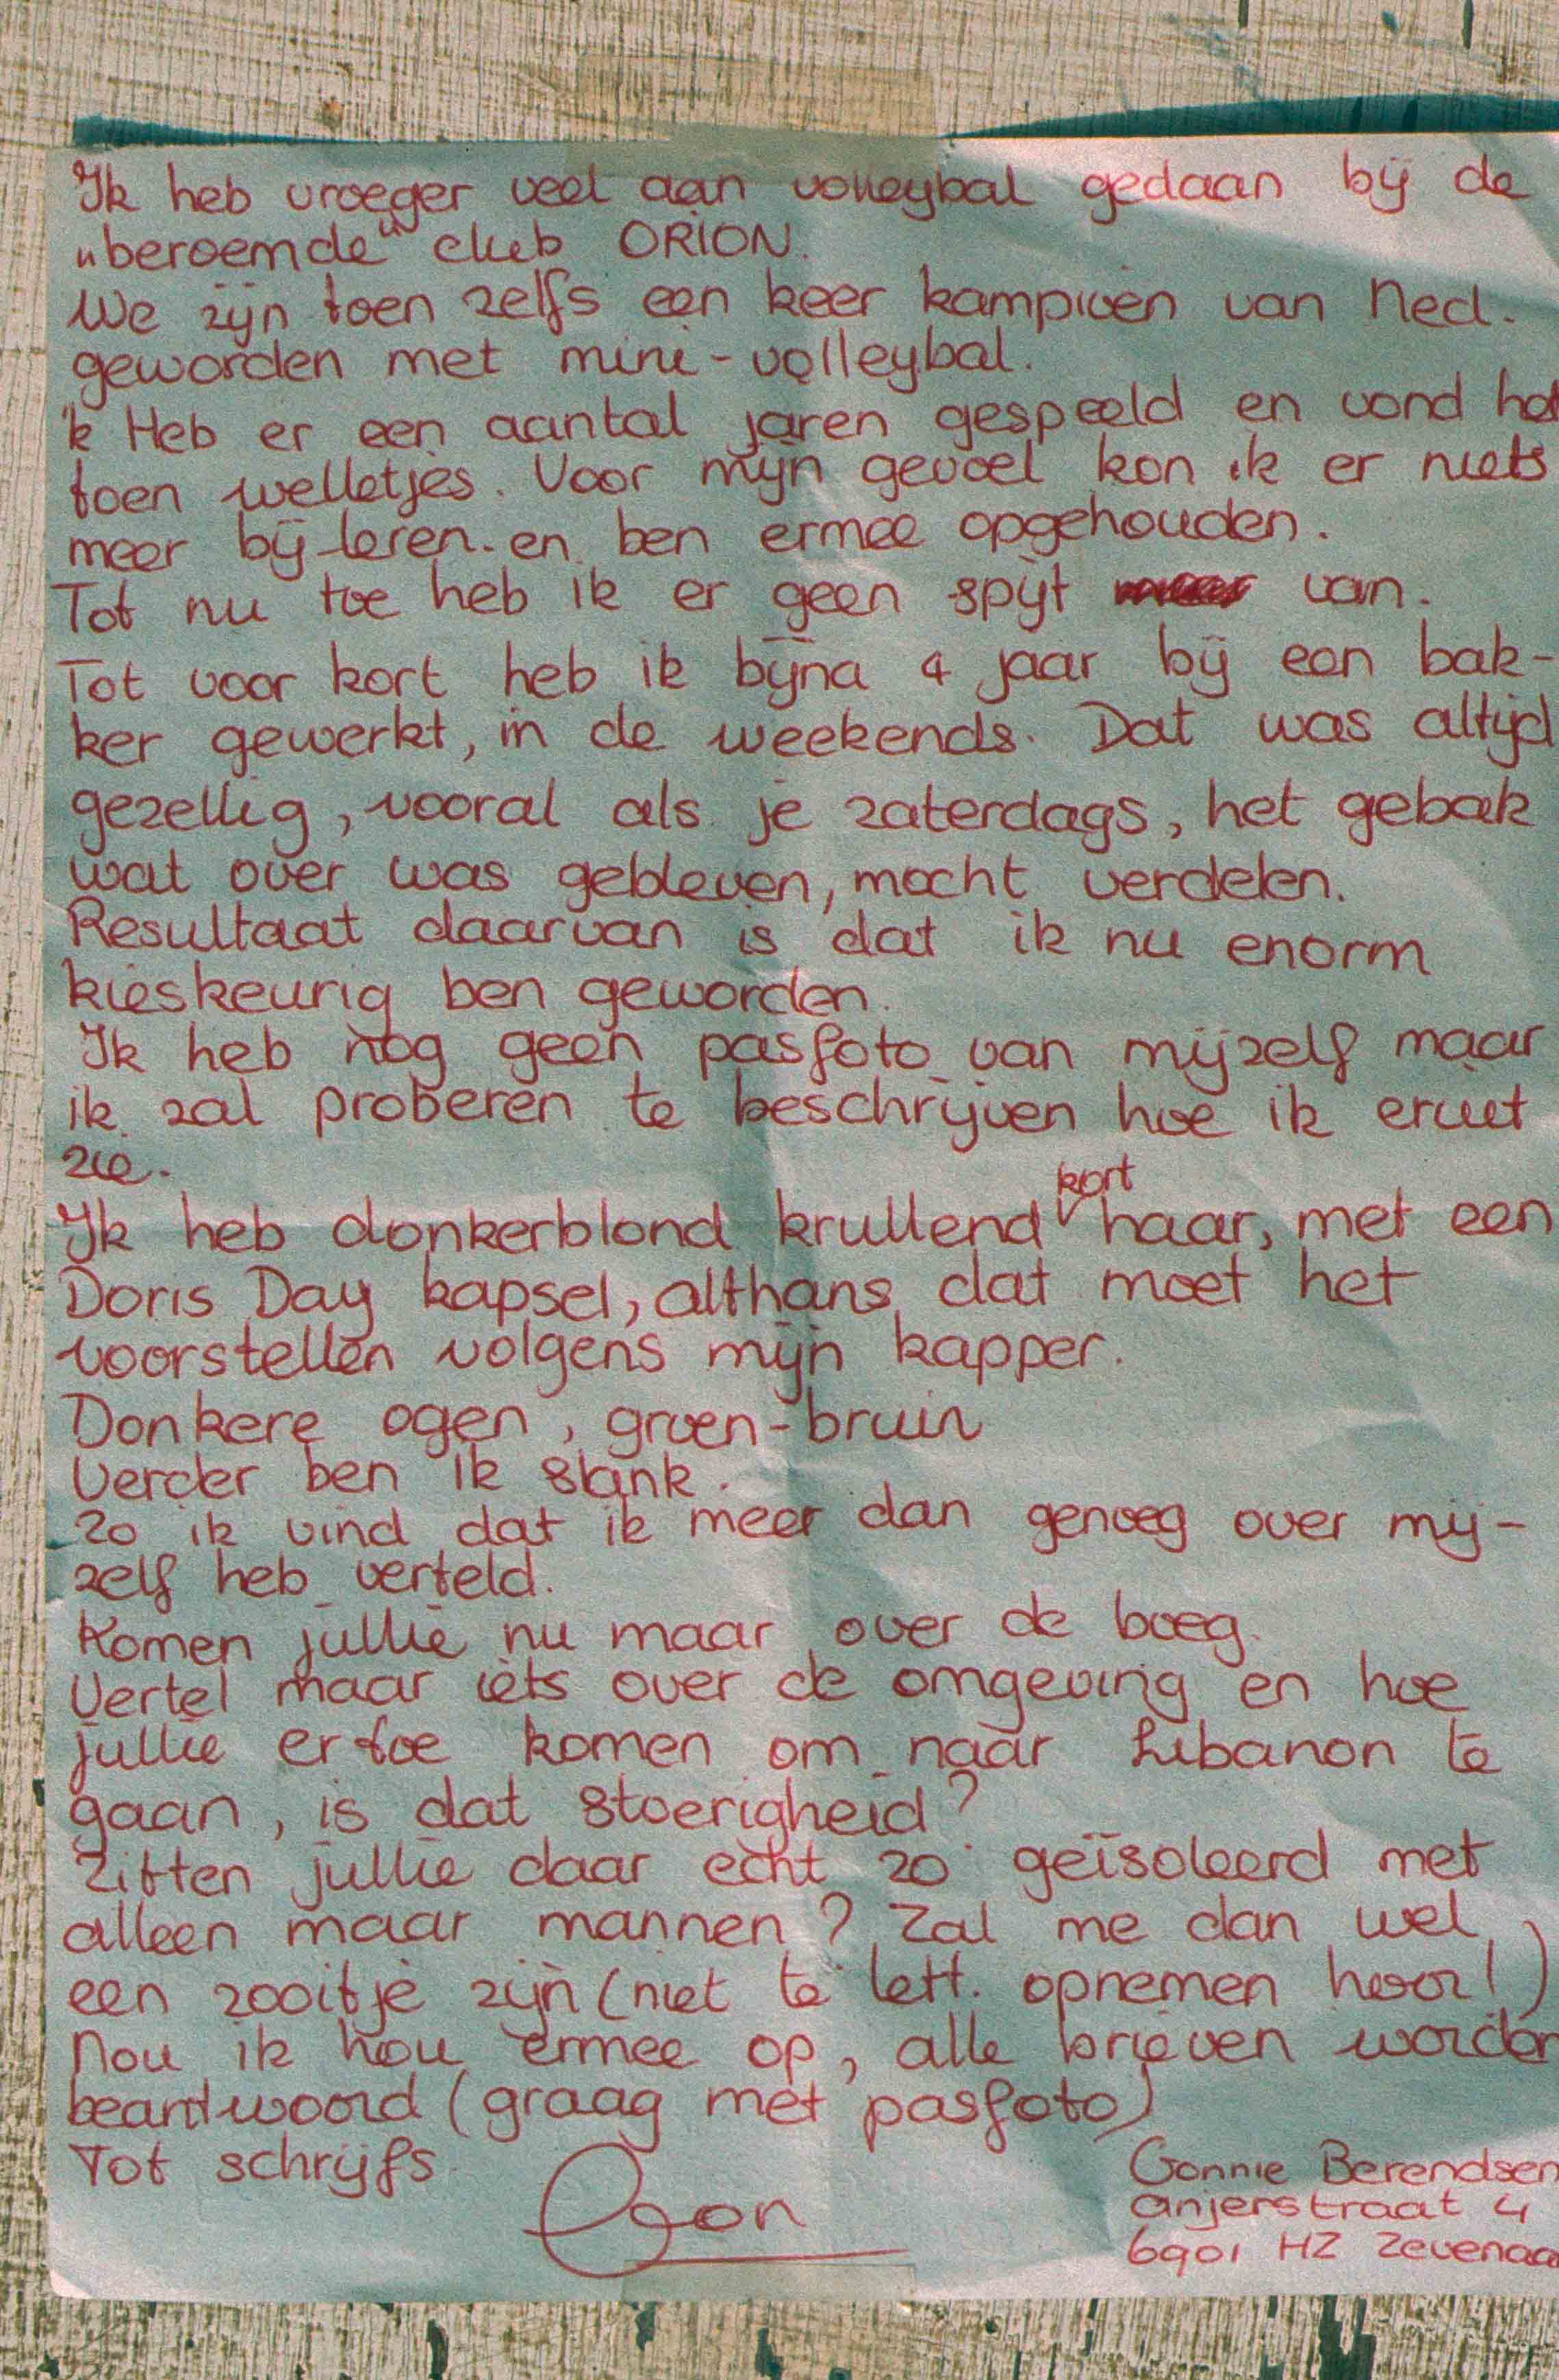 Ik heb vroeger veel aan volleybal gedaan bij de
„beroemde" club ORION.
We zijn toen zelfs een keer kampioen van Ned.
geworden met mini-volleybal.
'k Heb er een aantal jaren gespeeld en vond het
toen welletjes. Voor mijn gevoel kon ik er niets
meer bij leren. en ben ermee opgehouden.
Tot nu toe heb ik er geen spijt van.
Tot voor kort heb ik bijna 4 jaar bij een bak-
ker gewerkt, in de weekends. Dat was altijd
gezellig, vooral als je zaterdags, het gebak
wat over was gebleven, mocht verdelen.
Resultaat daarvan is dat ik nu enorm
kieskeurig ben geworden.
Ik heb nog geen pasfoto van mijzelf maar
ik zal proberen te beschrijven hoe ik eruit
zie.
Ik heb donkerblond krullend kort haar, met een
Doris Day kapsel, althans dat moet het
voorstellen volgens mijn kapper.
Donkere ogen, groen-bruin
Verder ben ik slank.
Zo ik vind dat ik meer dan genoeg over mij-
zelf heb verteld.
Komen jullie nu maar over de boeg.
Vertel maar iets over de omgeving en hoe
jullie ertoe komen om naar Libanon te
gaan, is dat stoerigheid?
Zitten jullie daar echt zo geïsoleerd met
alleen maar mannen? Zal me dan wel
een zooitje zijn (niet te lett. opnemen hoor!)
Nou ik hou ermee op, alle brieven worden
beantwoord (graag met pasfoto)
Tot schrijfs.
Gon
Gonnie Berendsen
Anjerstraat 4
6901 HZ Zevenaa